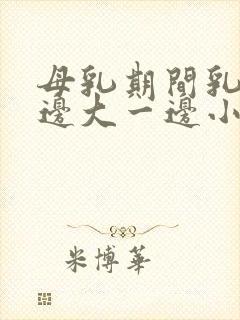 母乳期間乳
邊大一邊小
米博華